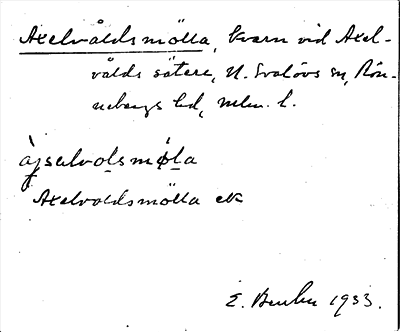 Axelvåldsmölla, kvarn vid Axel-
vålds säteri, N. Svalövs sn, Rön-
nebergs hd, Mlm. l.
àjsalvolsmø̀la
Axelvoldsmölla ek
E. 1933.